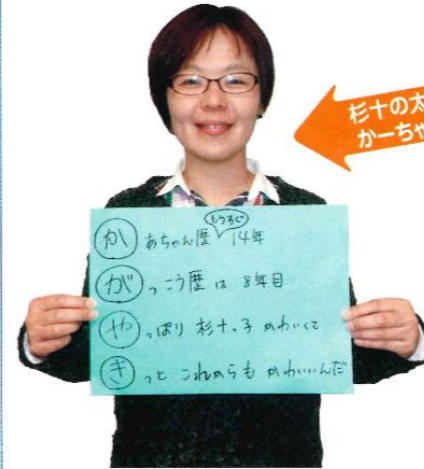 杉十の太
かーちゃ
もうすぐ
かあちゃん歴 14年
がっこう歴は 8年目
やっぱり 杉十っ子 かわいくて
きっと これからも かわいいんだ